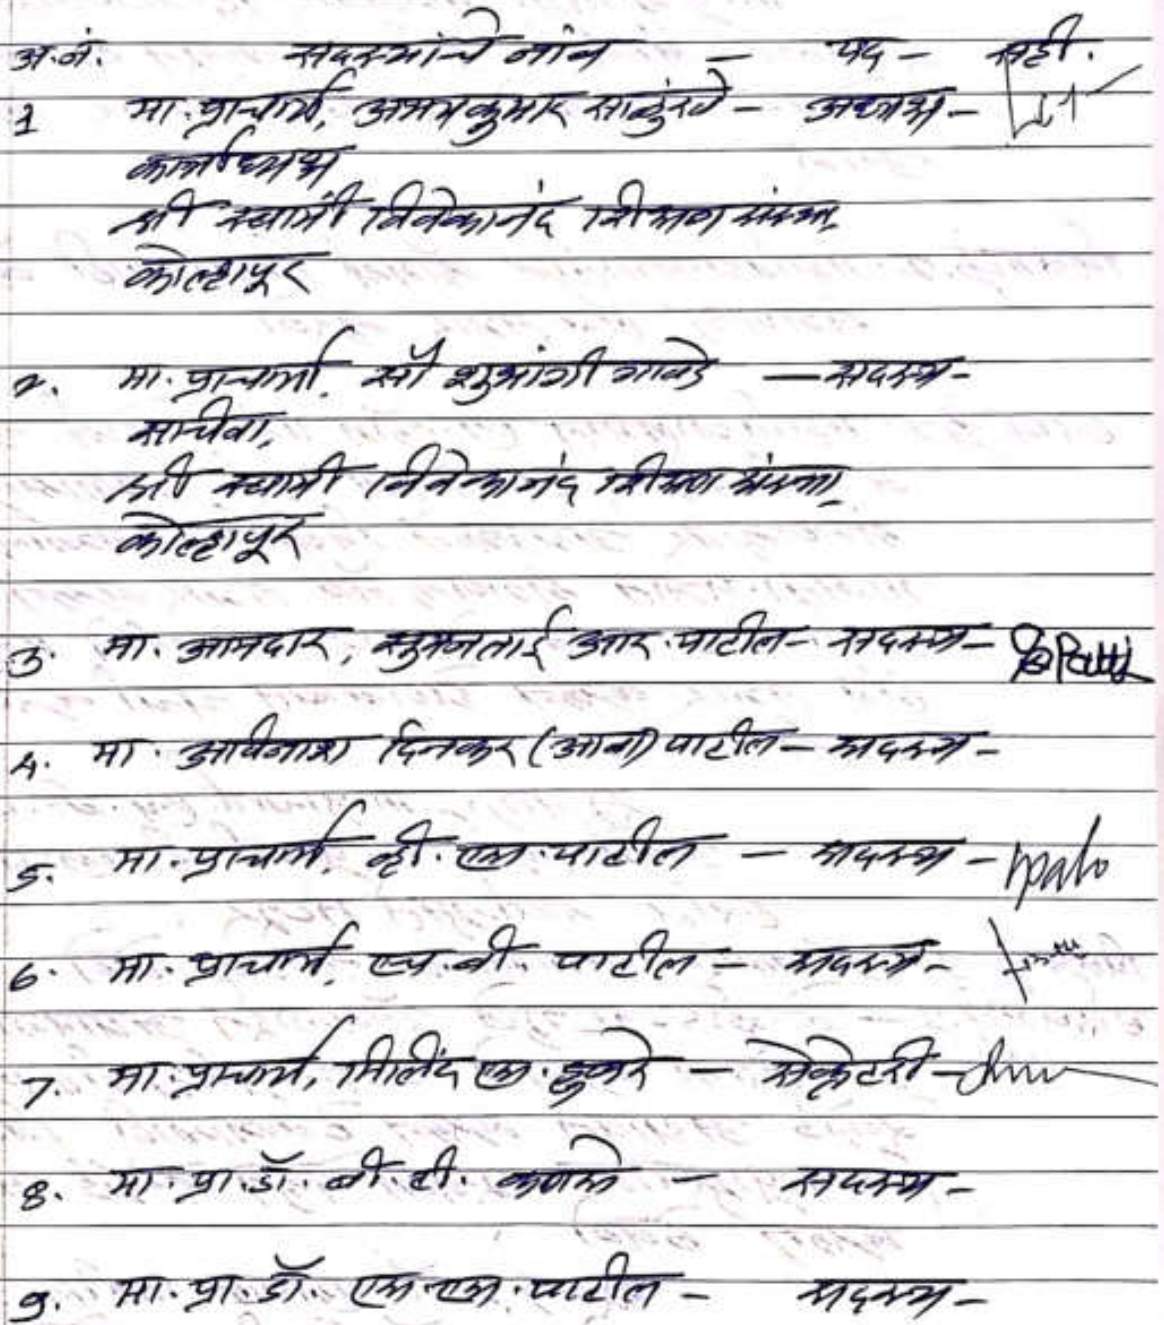 अ.नं. सदस्यांचे नांव – पद – सही.
1 मा. प्राचार्य, अभयकुमार साळुंखे – अध्यक्ष –
कार्याध्यक्ष
श्री स्वामी विवेकानंद शिक्षण संस्था,
कोल्हापूर
2. मा. प्राचार्या, सौ शुभांगी गावडे – सदस्य –
सचिवा,
श्री स्वामी विवेकानंद शिक्षण संस्था,
कोल्हापूर
3. मा. आमदार, सुमनताई आर. पाटील – सदस्य –
4. मा. अविनाश दिनकर (आबा) पाटील – सदस्य –
5. मा. प्राचार्य, व्ही. एम. पाटील – सदस्य –
6. मा. प्राचार्य, एच. बी. पाटील – सदस्य –
7. मा. प्राचार्य, मिलींद एस. हुजरे – सेक्रेटरी –
8. मा. प्रा. डॉ. बी. टी. कणसे – सदस्य –
9. मा. प्रा. डॉ. एस. एस. पाटील – सदस्य –